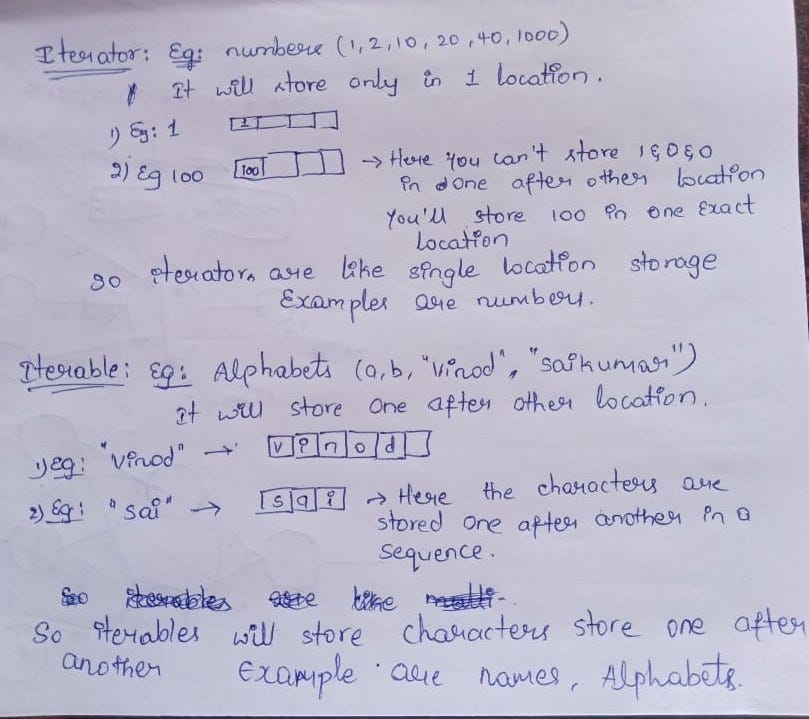 Iterator: Eg: numbers (1, 2, 10, 20, 40, 1000)
It will store only in 1 location.
1) Eg: 1 1
2) Eg 100 100 → Here you can't store 1&0&0
in one after other location
You'll store 100 in one Exact
location
so iterators are like single location storage
Examples are numbers.
Iterable: Eg: Alphabets (a, b, "Vinod", "Saikumar")
It will store one after other location.
1) Eg: "Vinod" → V i n o d
2) Eg: "Sai" → S a i → Here the characters are
stored one after another in a
sequence.
So iterables are like multi-
So iterables will store characters store one after
another Example are names, Alphabets.